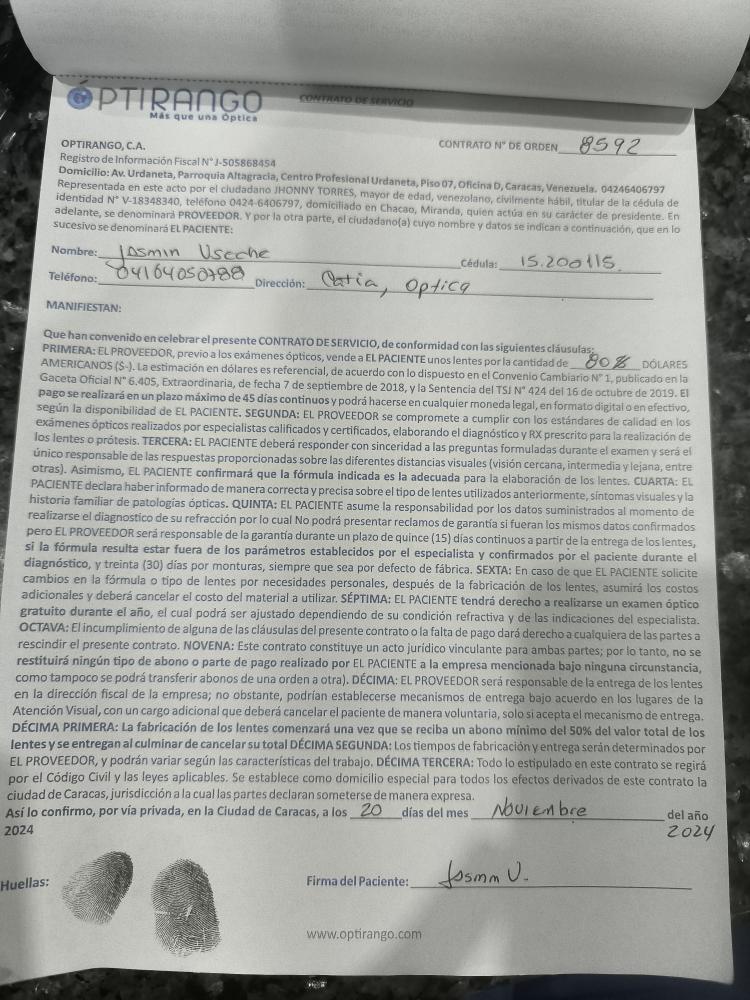 ÓPTIRANGO
Más que una Óptica
CONTRATO DE SERVICIO
OPTIRANGO, C.A.
CONTRATO N° DE ORDEN 8592
Registro de Información Fiscal N° J-505868454
Domicilio: Av. Urdaneta, Parroquia Altagracia, Centro Profesional Urdaneta, Piso 07, Oficina D, Caracas, Venezuela. 04246406797
Representada en este acto por el ciudadano JHONNY TORRES, mayor de edad, venezolano, civilmente hábil, titular de la cédula de
identidad N° V-18348340, teléfono 0424-6406797, domiciliado en Chacao, Miranda, quien actúa en su carácter de presidente. En
adelante, se denominará PROVEEDOR. Y por la otra parte, el ciudadano(a) cuyo nombre y datos se indican a continuación, que en lo
sucesivo se denominará EL PACIENTE:
Nombre: Josmin Useche Cédula: 15.200115.
Teléfono: 04164050788 Dirección: Catia, Optica
MANIFIESTAN:
Que han convenido en celebrar el presente CONTRATO DE SERVICIO, de conformidad con las siguientes cláusulas:
PRIMERA: EL PROVEEDOR, previo a los exámenes ópticos, vende a EL PACIENTE unos lentes por la cantidad de 80$ DÓLARES
AMERICANOS ($-). La estimación en dólares es referencial, de acuerdo con lo dispuesto en el Convenio Cambiario N° 1, publicado en la
Gaceta Oficial N° 6.405, Extraordinaria, de fecha 7 de septiembre de 2018, y la Sentencia del TSJ N° 424 del 16 de octubre de 2019. El
pago se realizará en un plazo máximo de 45 días continuos y podrá hacerse en cualquier moneda legal, en formato digital o en efectivo,
según la disponibilidad de EL PACIENTE. SEGUNDA: EL PROVEEDOR se compromete a cumplir con los estándares de calidad en los
exámenes ópticos realizados por especialistas calificados y certificados, elaborando el diagnóstico y RX prescrito para la realización de
los lentes o prótesis. TERCERA: EL PACIENTE deberá responder con sinceridad a las preguntas formuladas durante el examen y será el
único responsable de las respuestas proporcionadas sobre las diferentes distancias visuales (visión cercana, intermedia y lejana, entre
otras). Asimismo, EL PACIENTE confirmará que la fórmula indicada es la adecuada para la elaboración de los lentes. CUARTA: EL
PACIENTE declara haber informado de manera correcta y precisa sobre el tipo de lentes utilizados anteriormente, síntomas visuales y la
historia familiar de patologías ópticas. QUINTA: EL PACIENTE asume la responsabilidad por los datos suministrados al momento de
realizarse el diagnostico de su refracción por lo cual No podrá presentar reclamos de garantía si fueran los mismos datos confirmados
pero EL PROVEEDOR será responsable de la garantía durante un plazo de quince (15) días continuos a partir de la entrega de los lentes,
si la fórmula resulta estar fuera de los parámetros establecidos por el especialista y confirmados por el paciente durante el
diagnóstico, y treinta (30) días por monturas, siempre que sea por defecto de fábrica. SEXTA: En caso de que EL PACIENTE solicite
cambios en la fórmula o tipo de lentes por necesidades personales, después de la fabricación de los lentes, asumirá los costos
adicionales y deberá cancelar el costo del material a utilizar. SÉPTIMA: EL PACIENTE tendrá derecho a realizarse un examen óptico
gratuito durante el año, el cual podrá ser ajustado dependiendo de su condición refractiva y de las indicaciones del especialista.
OCTAVA: El incumplimiento de alguna de las cláusulas del presente contrato o la falta de pago dará derecho a cualquiera de las partes a
rescindir el presente contrato. NOVENA: Este contrato constituye un acto jurídico vinculante para ambas partes; por lo tanto, no se
restituirá ningún tipo de abono o parte de pago realizado por EL PACIENTE a la empresa mencionada bajo ninguna circunstancia,
como tampoco se podrá transferir abonos de una orden a otra). DÉCIMA: EL PROVEEDOR será responsable de la entrega de los lentes
en la dirección fiscal de la empresa; no obstante, podrían establecerse mecanismos de entrega bajo acuerdo en los lugares de la
Atención Visual, con un cargo adicional que deberá cancelar el paciente de manera voluntaria, solo si acepta el mecanismo de entrega.
DÉCIMA PRIMERA: La fabricación de los lentes comenzará una vez que se reciba un abono mínimo del 50% del valor total de los
lentes y se entregan al culminar de cancelar su total DÉCIMA SEGUNDA: Los tiempos de fabricación y entrega serán determinados por
EL PROVEEDOR, y podrán variar según las características del trabajo. DÉCIMA TERCERA: Todo lo estipulado en este contrato se regirá
por el Código Civil y las leyes aplicables. Se establece como domicilio especial para todos los efectos derivados de este contrato la
ciudad de Caracas, jurisdicción a la cual las partes declaran someterse de manera expresa.
Así lo confirmo, por vía privada, en la Ciudad de Caracas, a los 20 días del mes Noviembre del año
2024 2024
Huellas:
Firma del Paciente: Josmin U.
www.optirango.com